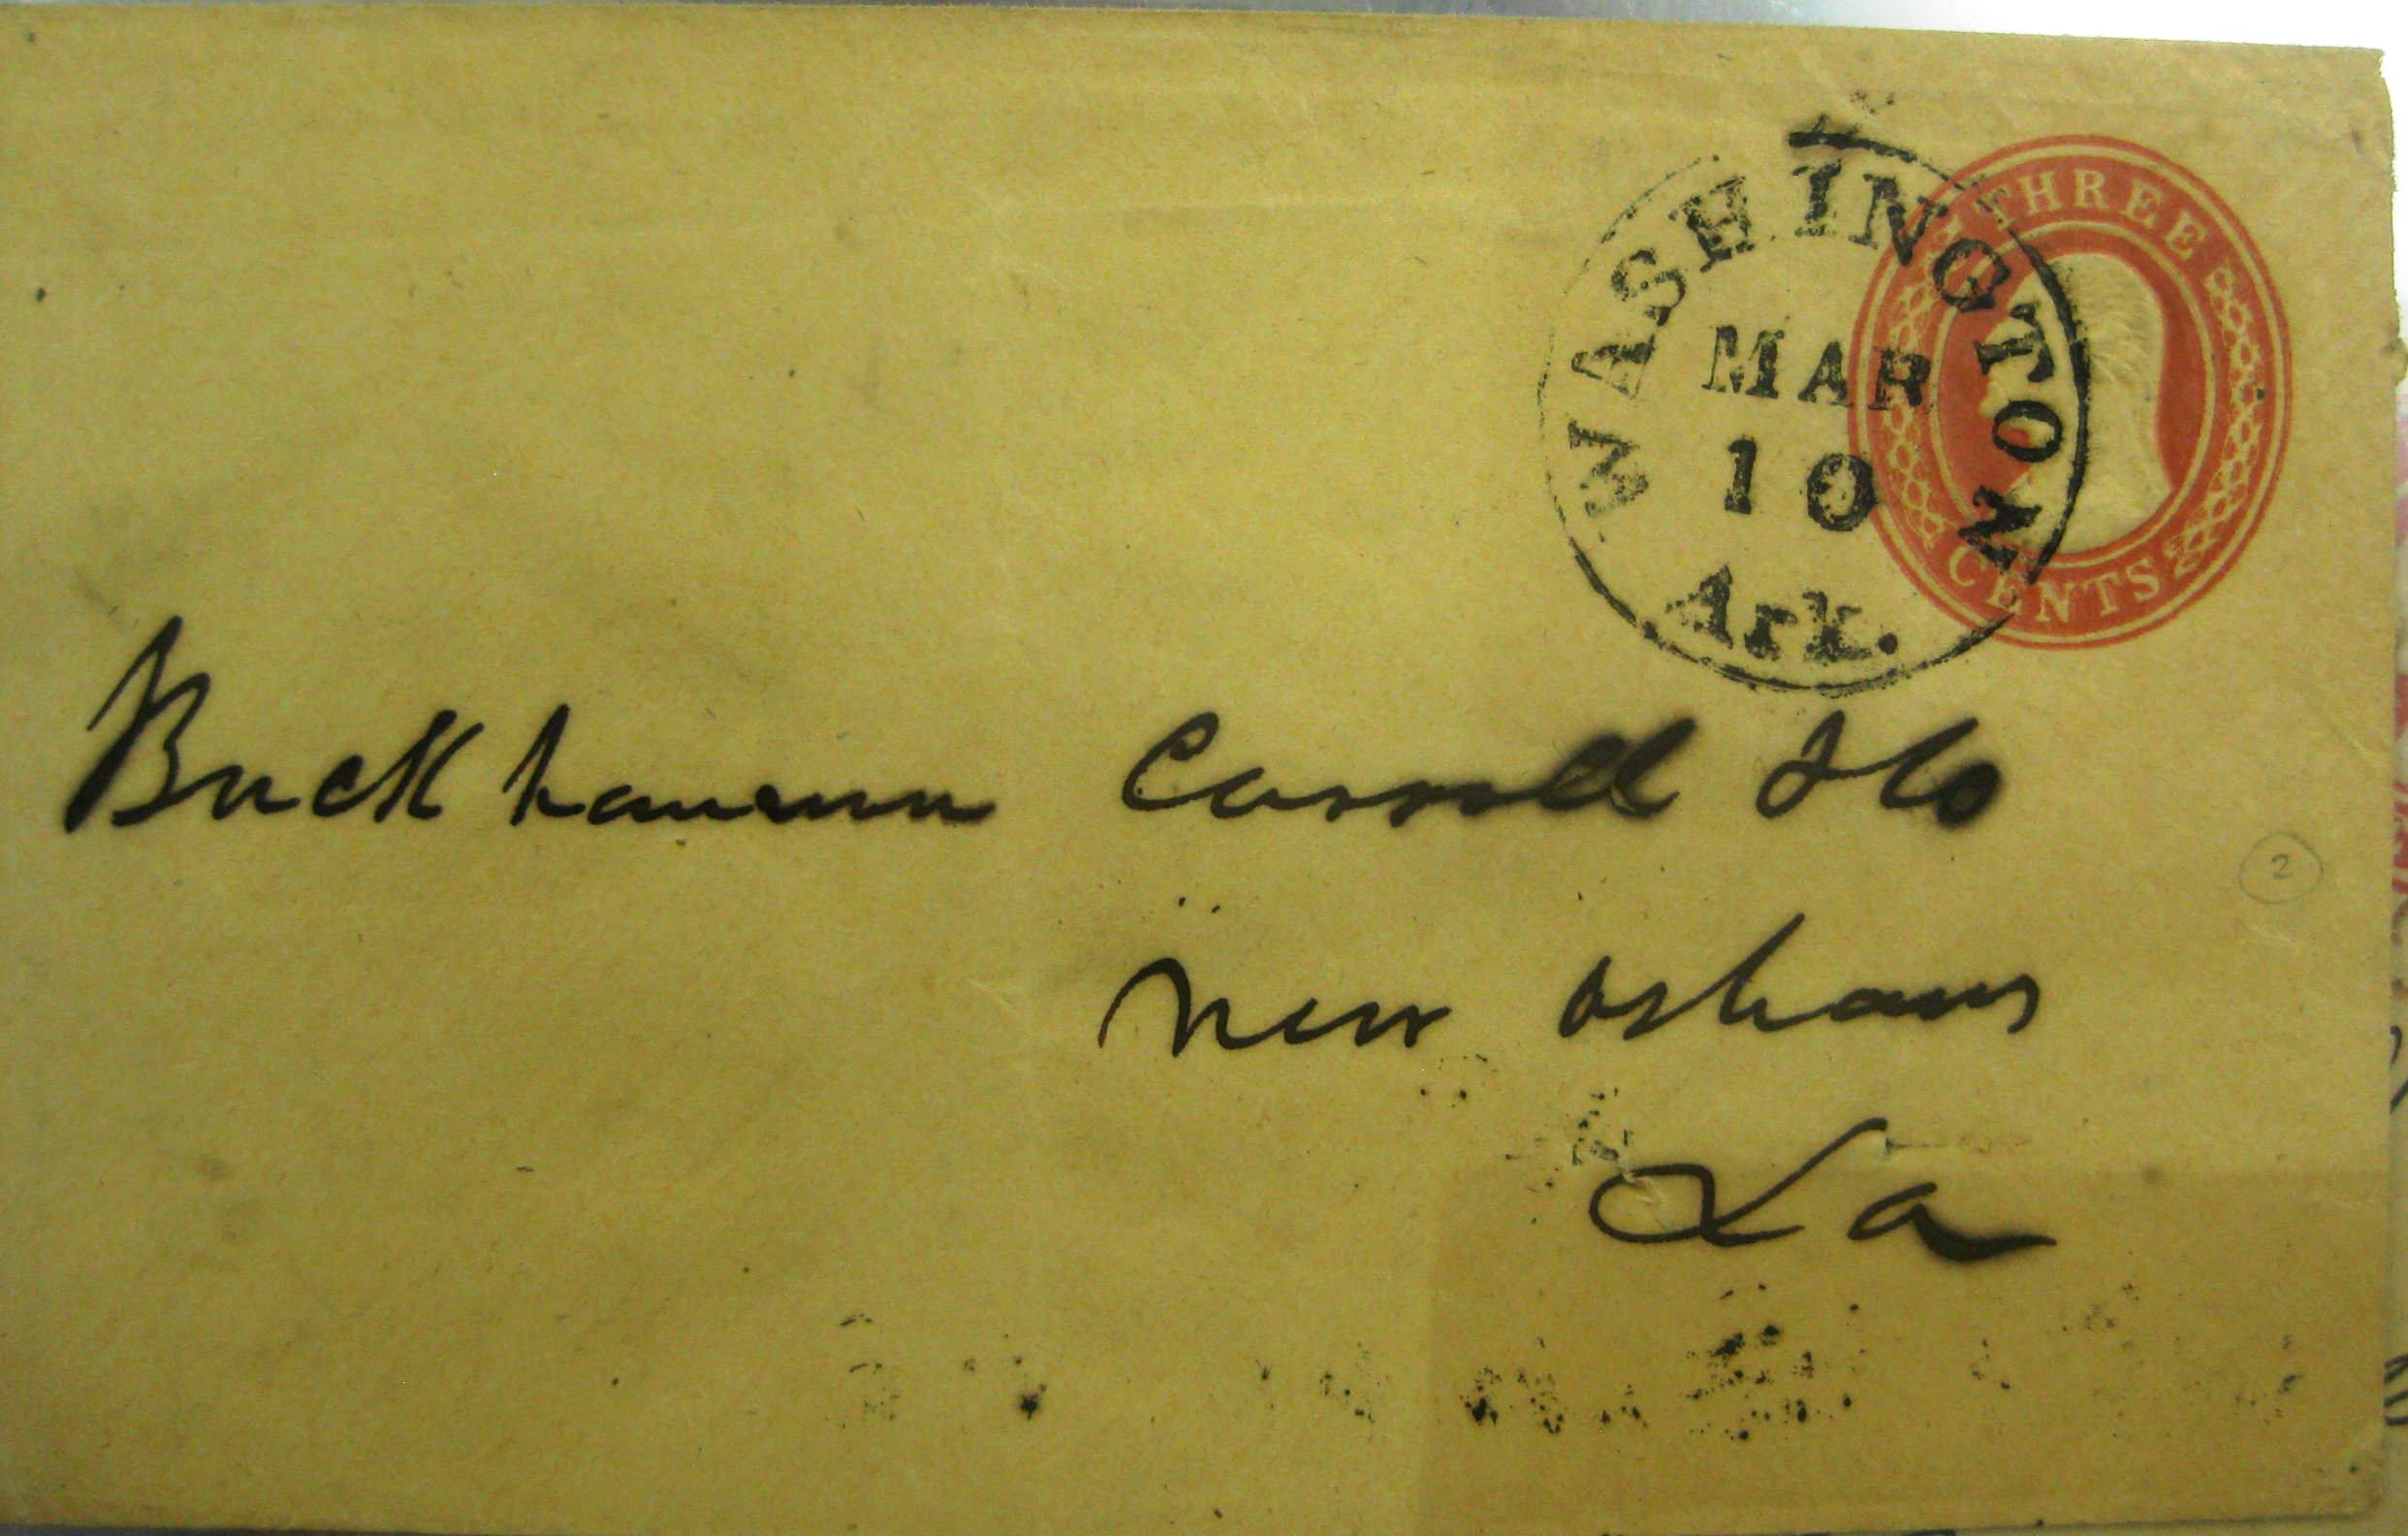 THREE
CENTS
WASHINGTON
MAR
10
Ark.
Buckhannan Carroll & Co
2
New Orleans
La